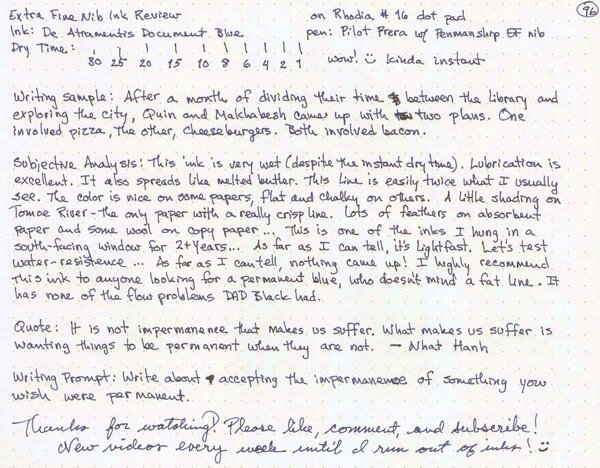 Extra Fine Nib Ink Review on Rhodia # 16 dot pad 96
Ink: De Atramentis Document Blue pen: Pilot Prera w/ Penmanship EF nib
Dry Time:
30 25 20 15 10 8 6 4 2 1 wow! kinda instant
Writing sample: After a month of dividing their time between the library and
exploring the city, Quin and Makhabesh came up with two plans. One
involved pizza, the other, cheeseburgers. Both involved bacon.
Subjective Analysis: This ink is very wet (despite the instant dry time). Lubrication is
excellent. It also spreads like melted butter. This line is easily twice what I usually
see. The color is nice on some papers, flat and chalky on others. A little shading on
Tomoe River - the only paper with a really crisp line. Lots of feathers on absorbent
paper and some wool on copy paper... This is one of the inks I hung in a
south-facing window for 2+ years... As far as I can tell, it's lightfast. Let's test
water-resistence... As far as I can tell, nothing came up! I highly recommend
this ink to anyone looking for a permanent blue, who doesn't mind a fat line. It
has none of the flow problems DAD Black had.
Quote: It is not impermanence that makes us suffer. What makes us suffer is
wanting things to be permanent when they are not. - Nhat Hanh
Writing Prompt: Write about accepting the impermanence of something you
wish were permanent.
Thanks for watching! Please like, comment, and subscribe!
New videos every week until I run out of inks!